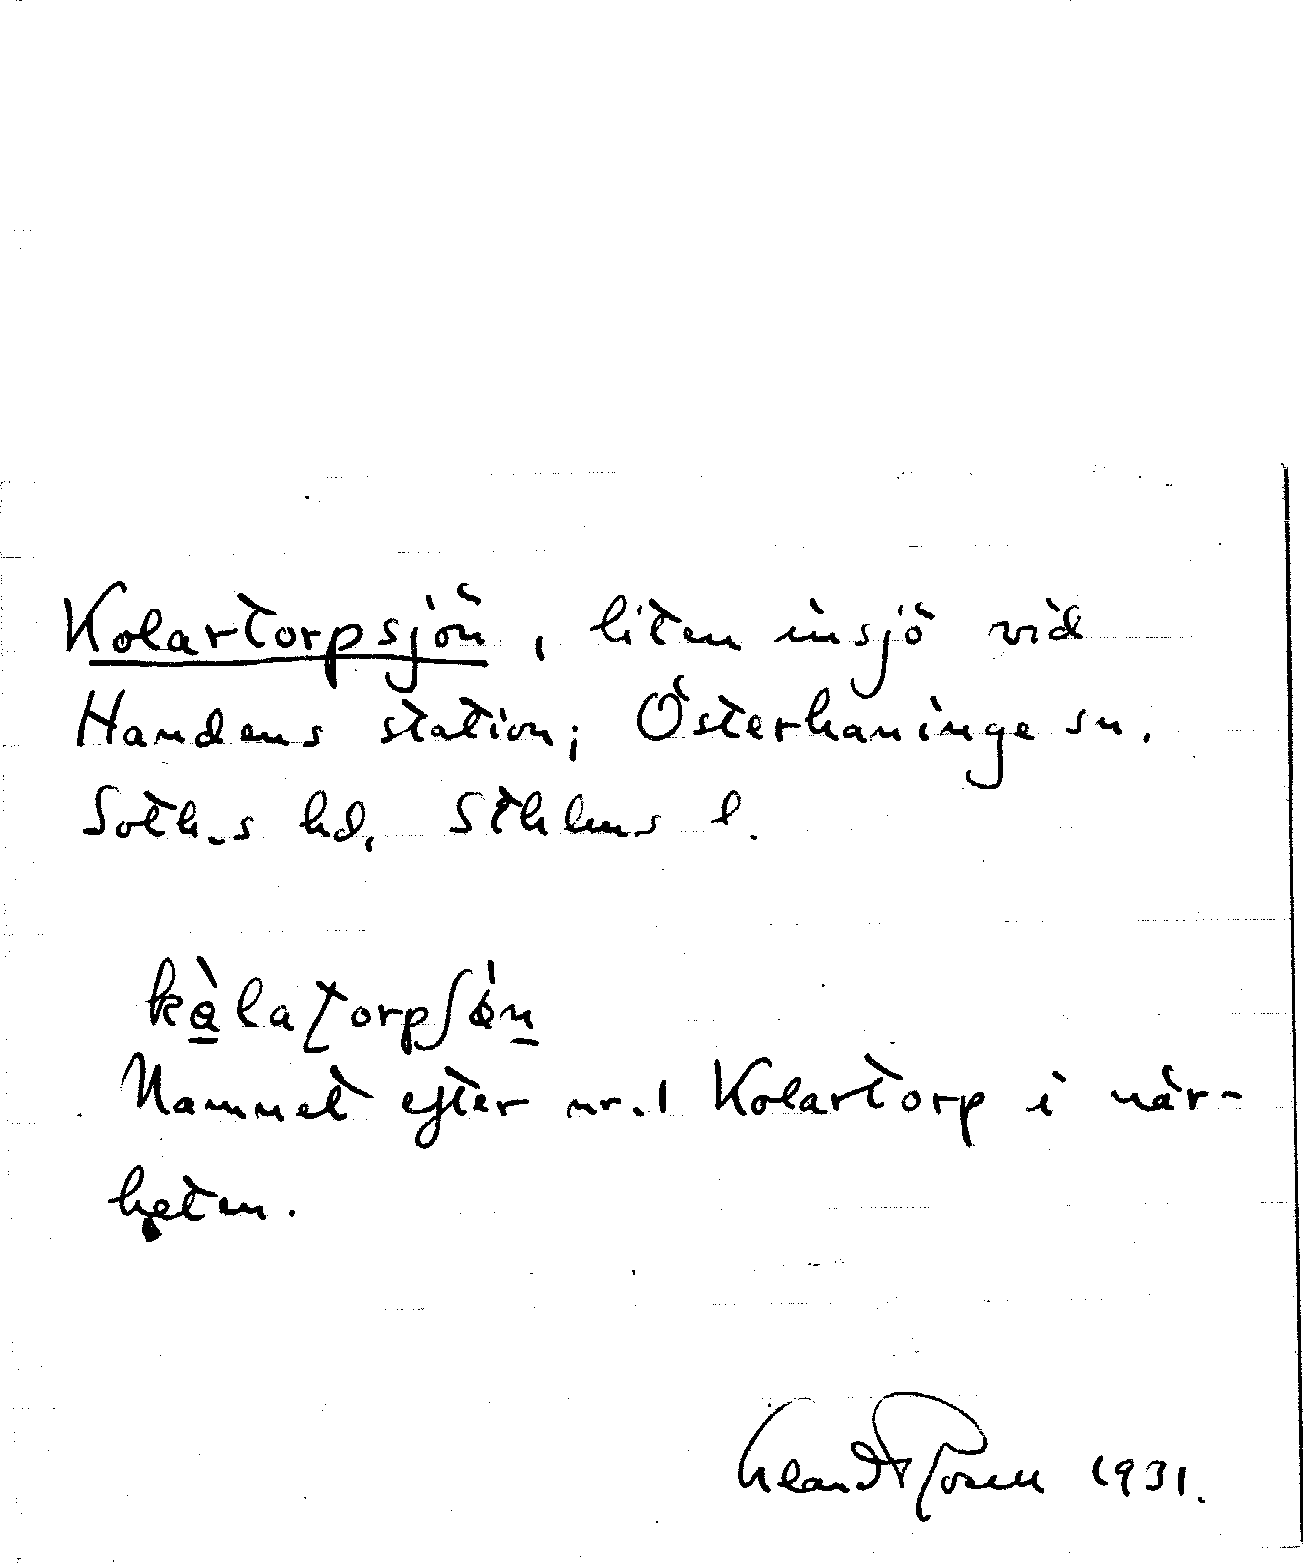 Kolartorpsjön, liten insjö vid
Handens station; Österhaninge sn.
Soth-s hd, Sthlms l.
kàlatorpʃön
Namnet efter nr. 1 Kolartorp i när-
heten.
Rosell 1931.